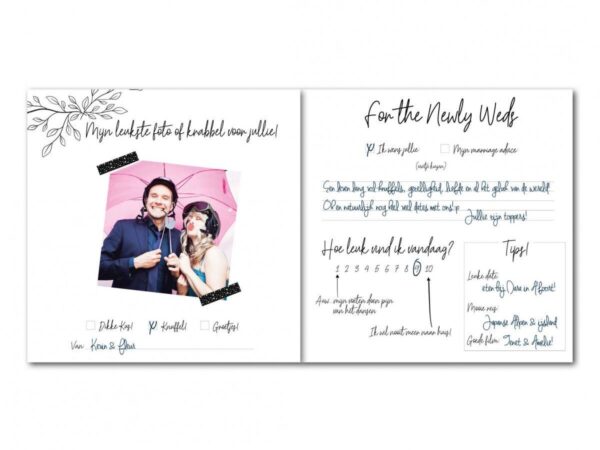 Mijn leukste foto of krabbel voor jullie!
Dikke Kus!
Knuffel!
Groetjes!
Van: Keun & Fleur
For the Newly Weds
Ik wens jullie
Mijn marriage advice
Een leven lang vol knuffels, gezelligheid, liefde en al het geluk van de wereld.
Oh en natuurlijk nog heel veel dates met ons :p
Jullie zijn toppers!
Hoe leuk vind ik vandaag?
1 2 3 4 5 6 7 8 9 10
Auw.. mijn voeten doen pijn
van het dansen
Ik wil nooit meer naar huis!
Tips!
Leuke date:
eten bij Dara in
Mooie reis:
Japanse Alpen & ijsland
Goede film:
Tenet & Amelie!